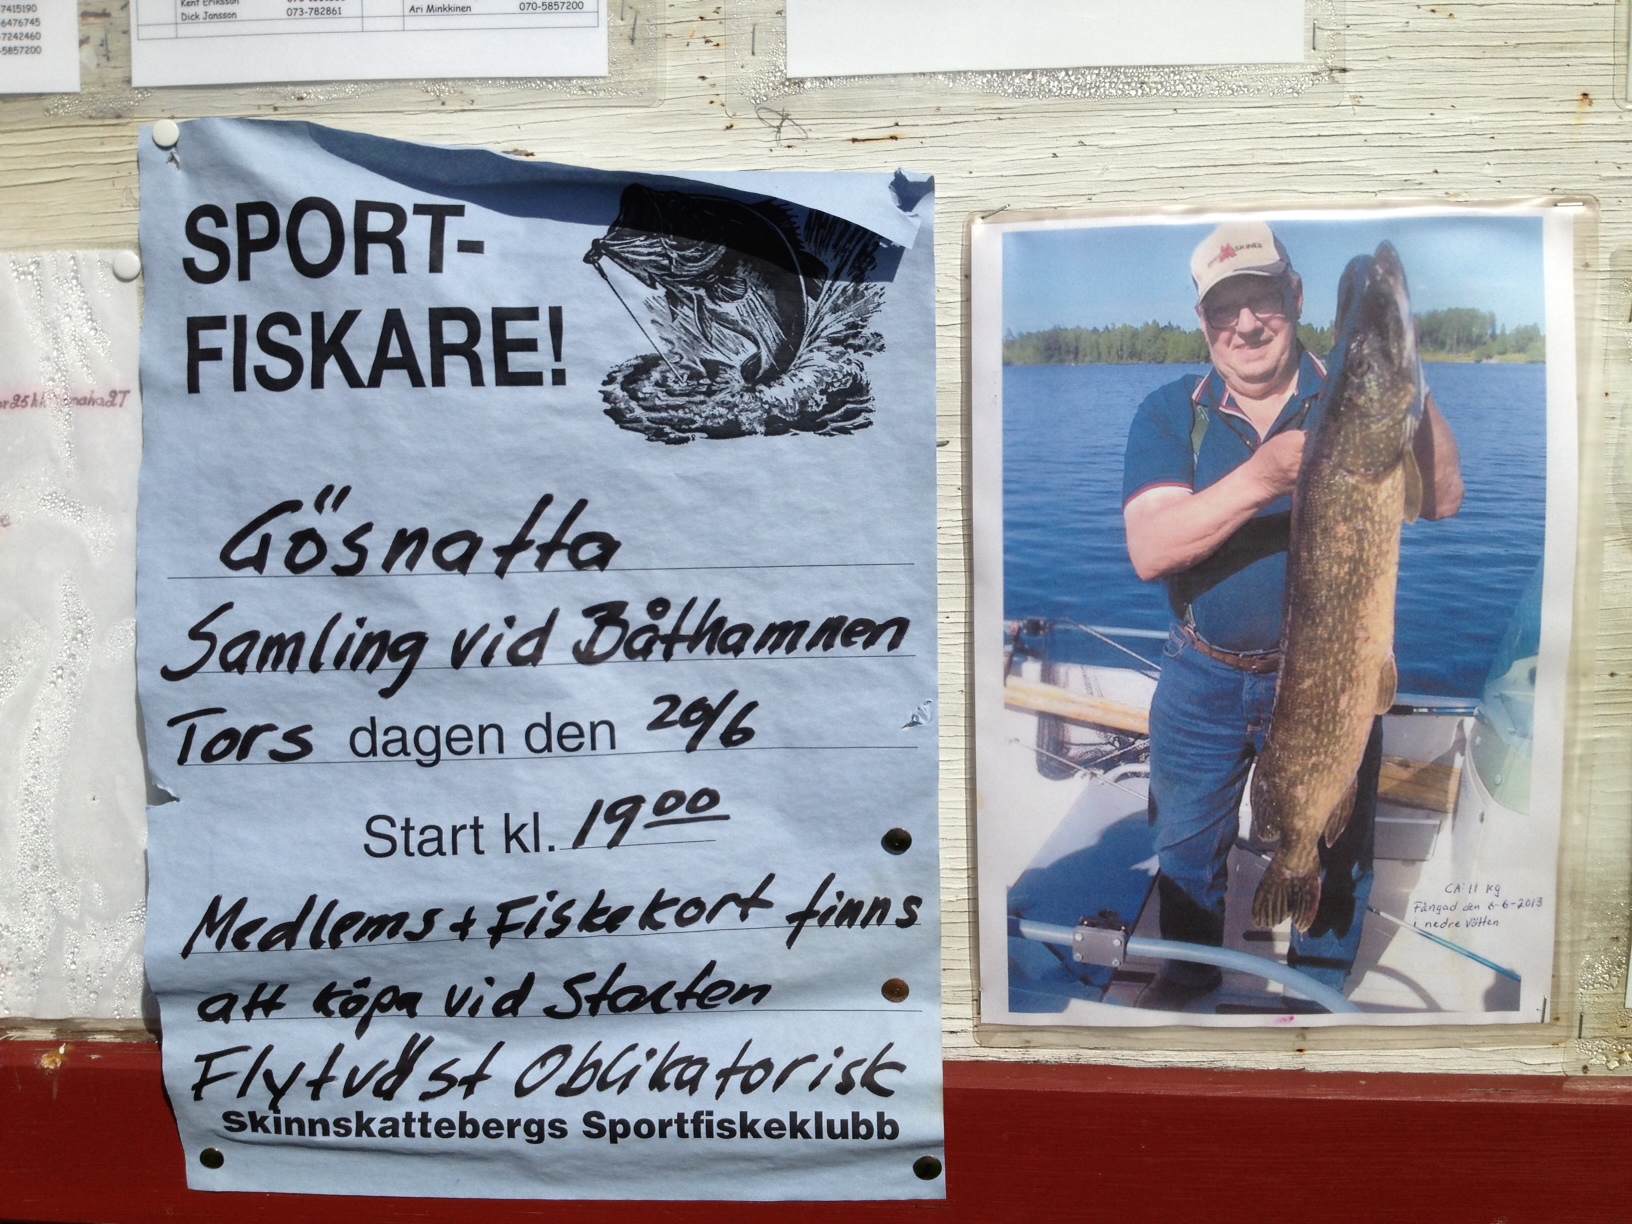 7415190
6476745
7242460
5857200
Kent Eriksson
Dick Jansson 073-782861
Ari Minkkinen 070-5857200
SPORT-
FISKARE!
Gösnatta
Samling vid Båthamnen
Tors dagen den 20/6
Start kl. 19 00
Medlems + Fiskekort finns
att köpa vid Starten
Flytväst Oblikatorisk
Skinnskattebergs Sportfiskeklubb
CA: 11 kg
Fångad den 6-6-2013
i nedre Vätten